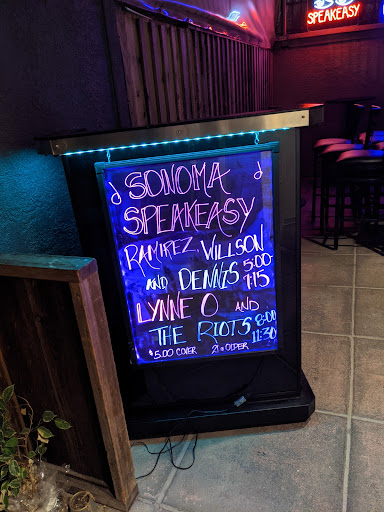 SPEAKEASY
SONOMA
SPEAKEASY
RAMIREZ WILLSON
AND DENNIS 5:00
7:15
LYNNE O AND
THE RIOTS 8:00
11:30
$5.00 COVER 21 & OLDER